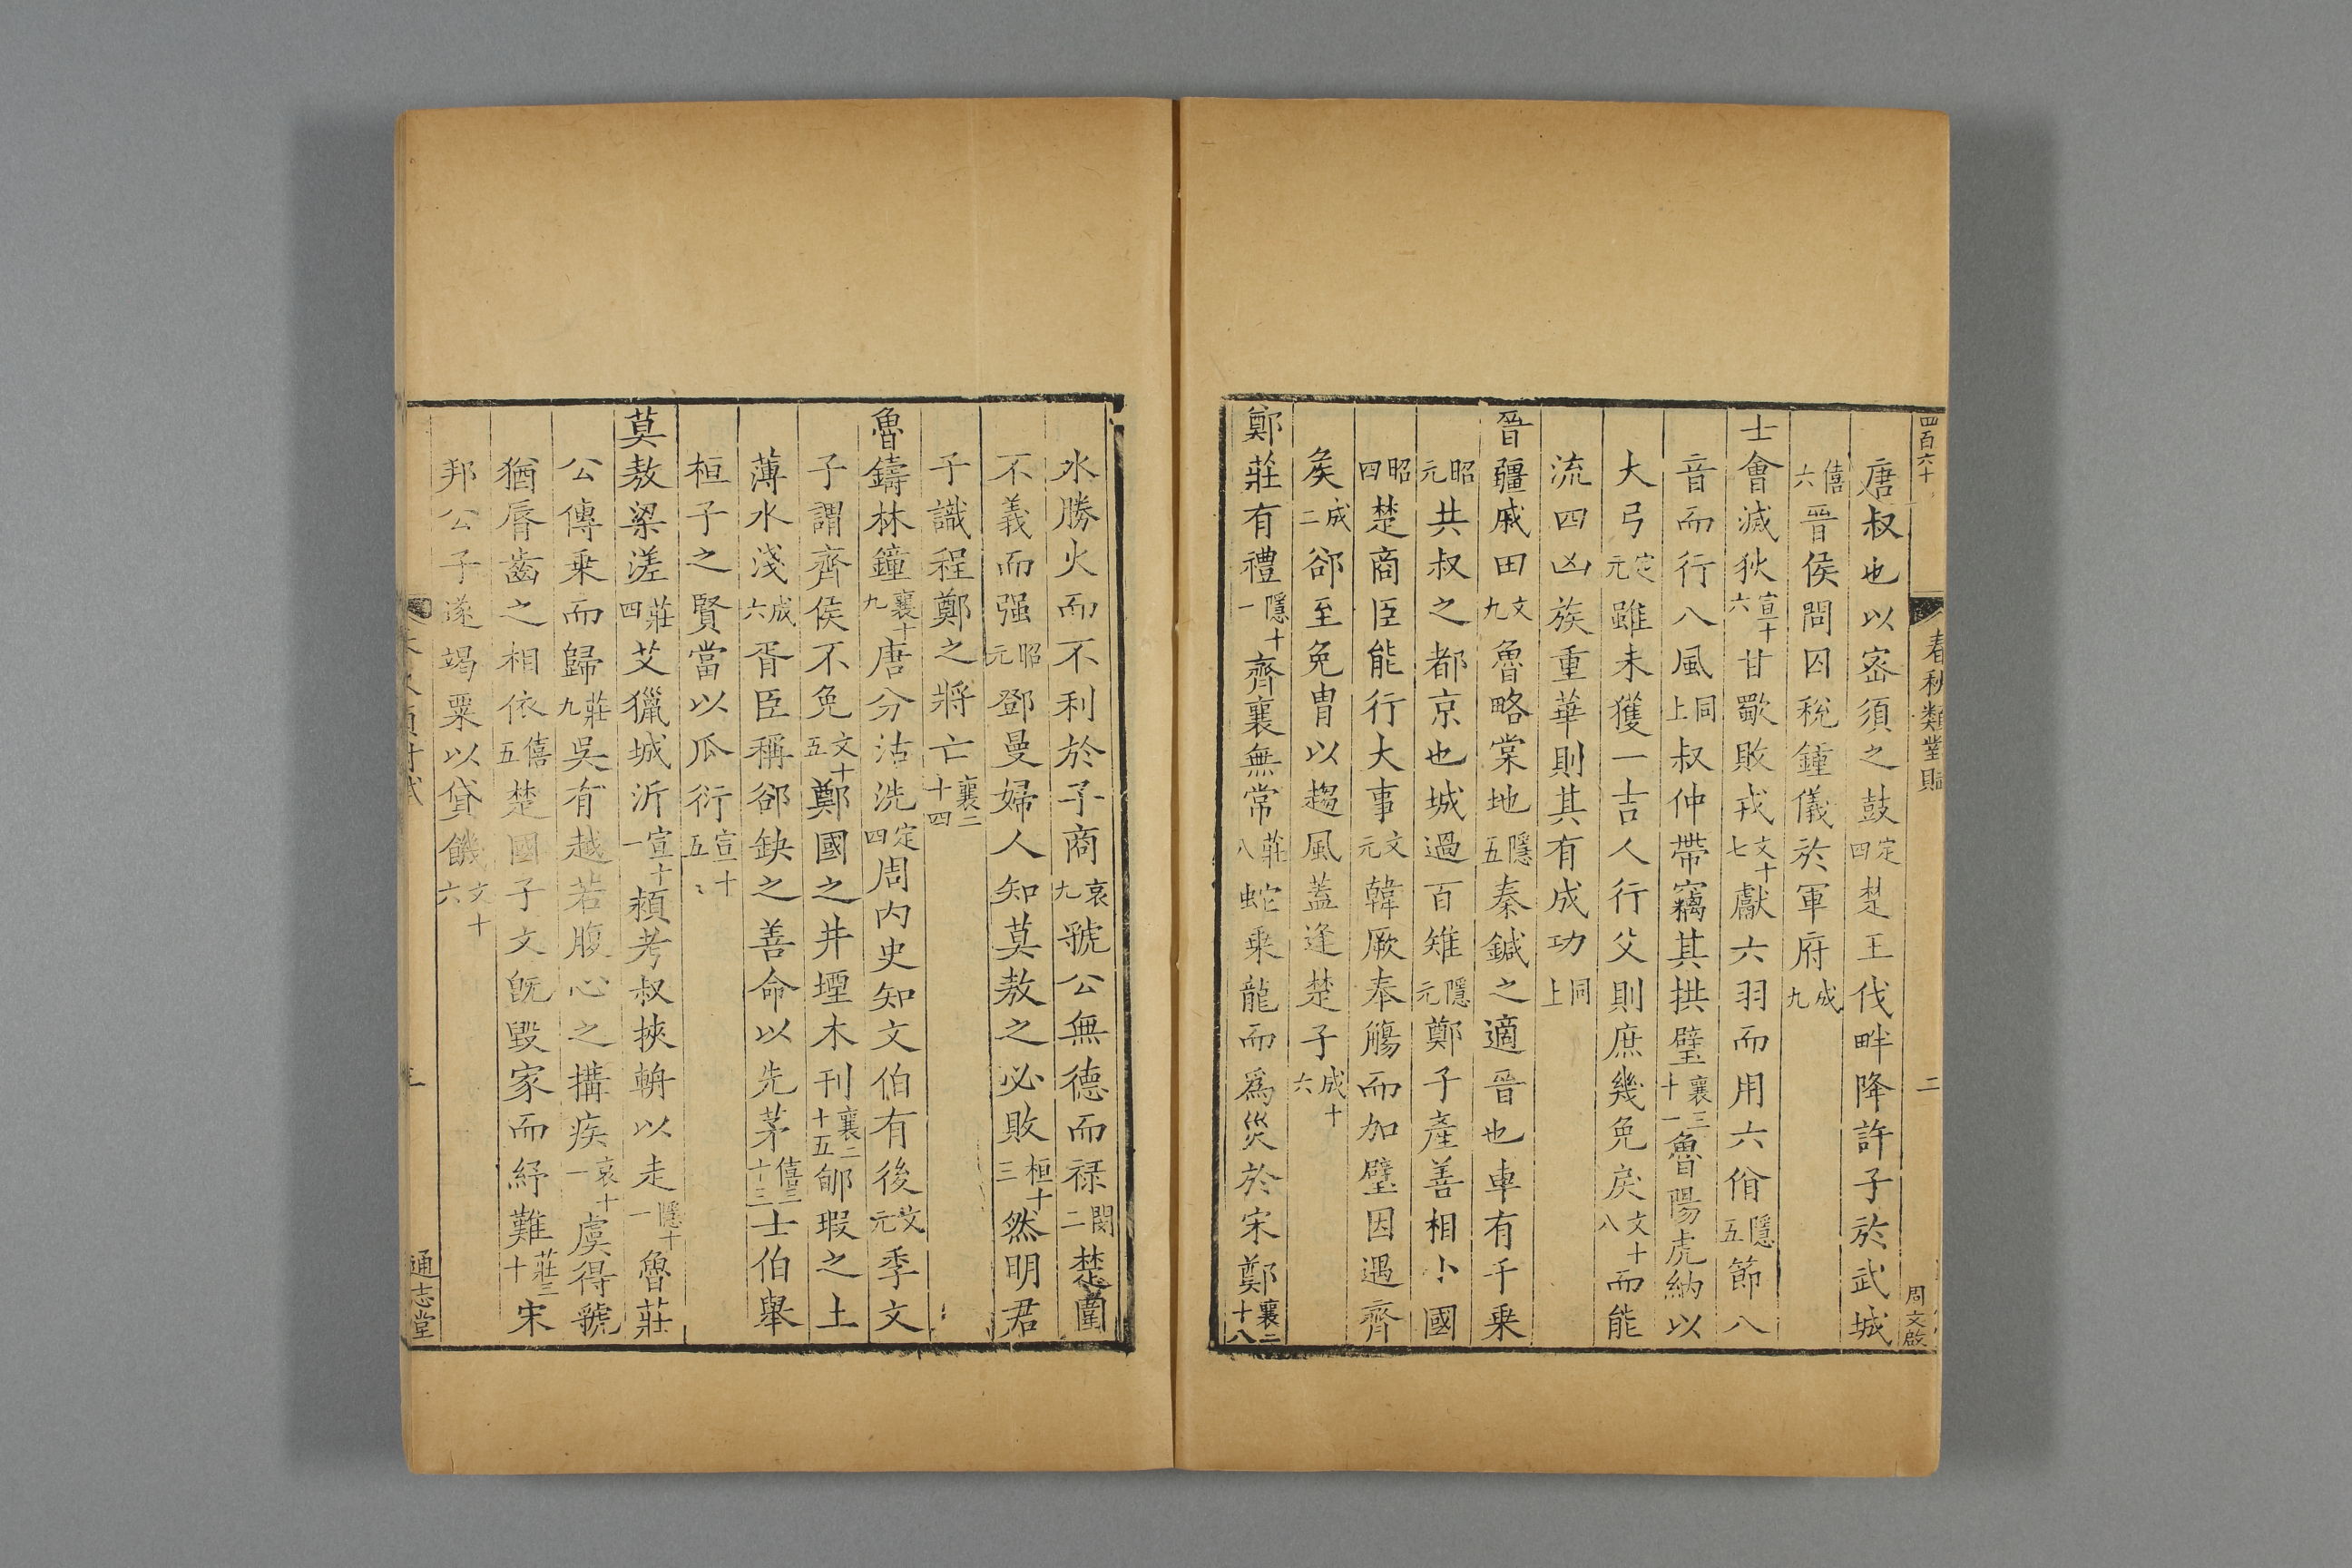 四百六十
春秋類對賦
二
周文啟
唐叔也以宻須之鼓定四楚王伐畔降許子於武城
僖六晋侯問囚稅鍾儀於軍府成九
士會滅狄宣十六甘歜敗戎文十七獻六羽而用六佾隱五節八
音而行八風同上叔仲帶竊其拱璧襄三十一魯陽虎納以
大弓定元雖未獲一吉人行父則庶幾免戾文十八而能
流四凶族重華則其有成功同上
晋疆戚田文九魯略棠地隱五秦鍼之適晋也車有千乗
昭元共叔之都京也城過百雉隱元鄭子產善相小國
昭四楚商臣能行大事文元韓厥奉觴而加璧因遇齊
矦成二郤至免胄以趨風蓋逢楚子成十六
鄭莊有禮隱十一齊襄無常莊八蛇乗龍而爲災於宋鄭襄二十八
水勝火而不利於子商哀九虢公無德而禄閔二楚圍
不義而强昭元鄧曼婦人知莫敖之必敗桓十三然明君
子識程鄭之將亡襄二十四
魯鑄林鐘襄十九唐分沽洗定四周内史知文伯有後文元季文
子謂齊侯不免文十五鄭國之井堙木刊襄二十五郇瑕之土
薄水淺成六胥臣稱郤缺之善命以先茅僖三十三士伯舉
桓子之賢當以瓜衍宣十五
莫敖梁溠莊四艾獵城沂宣十一頴考叔挾輈以走隱十一魯莊
公傳乗而歸莊九吳有越若腹心之搆疾哀十一虞得虢
猶脣齒之相依僖五楚國子文旣毀家而紓難莊三十宋
邦公子遂竭粟以貸饑文十六
通志堂